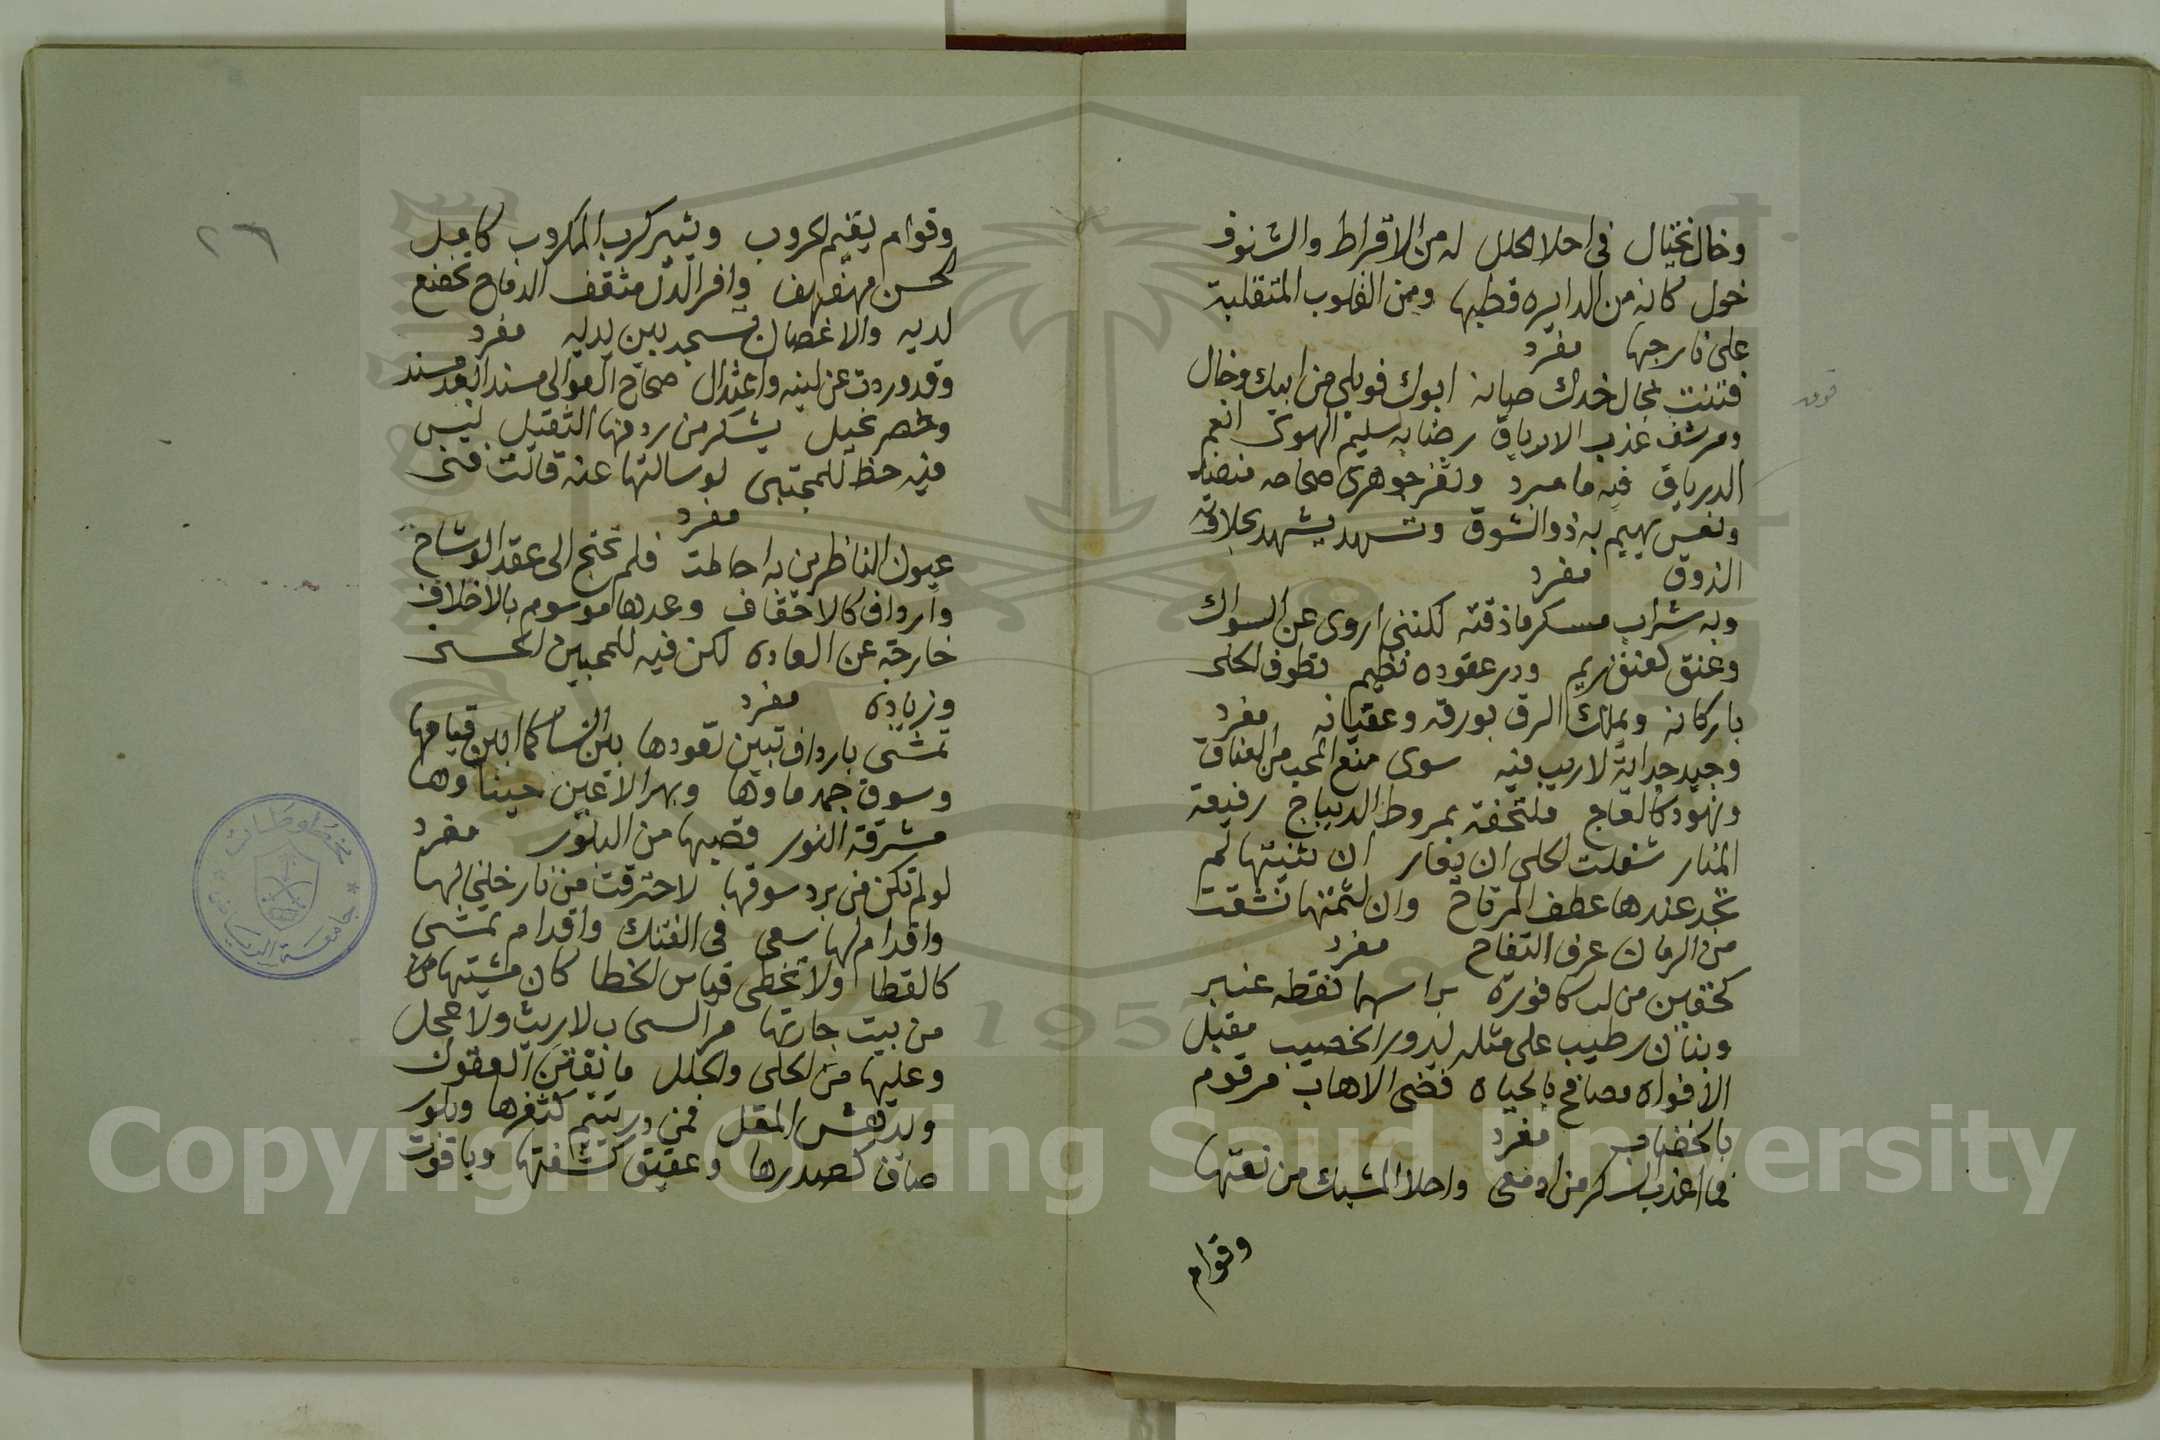 وخال يختال في احلا الحلل له من الاقراط والشنوف
خول كانه من الدايره قطبها ومن القلوب المتقلبة
على نار جها مفرد
فتنت بخال خدك صانه ابوك فويلي من ابيك وخال
ومرشف عذب الارياق رضابه لسليم الهوى انعم
الدرياق فيه ما مبرد وثغر جوهري صحاحه منضد
ونفس يهيم به ذوا الشوق وشهد يشهد بحلاوته
الذوق مفرد
وبه شراب مسكر ما ذقته لكنني اروى عن السواك
وعنق كعنق ريم ودر عقوده نظيم تطوف الحلى
باركانه ويملك الرق بورقه وعقيانه مفرد
وجيد جداية لا ريب فيه سوى منع المحب من العناق
ونهود كالعاج ملتحفة بمروط الديباج رفيعة
المنار شغلت الحلى ان يغار ان تثنيتها لم
تجد عندها عطف المرتاح وان لثمتها نشقت
من الرمان عرف التفاح مفرد
كحقين من لب كافورة براسهما نقطه عنبر
وبنان رطيب على مثله يدور الخصيب مقبل
الافواه مصافح بالحياه فضى الاهاب مرقوم
بالخضاب مفرد
فما اعذب السكر من ادمعي واحلا المشبك من نعتها
وقوام
قوت
٢٦
وقوام يقيم الحروب ويثير كرب المكروب كامل
الحسن مهفهف وافر الدل مثقف الرماح تخضع
لديه والاغصان تسجد بين يديه مفرد
وقد وردت عن لينه واعتدال صحاح العوالي مسندا بعد مسند
وخصر نحيل يشكر من ردفها الثقيل ليس
فيه حظ للمجتبى لو سالتها عنه قالت فنى
مفرد
عيون الناظرين به احاطت فلم تحتج الى عقد الوشاح
وارداف كالاحقاف وعدها موسوم بالاخلاف
خارجة عن العاده لكن فيه للمحبين الحسنى
وزياده مفرد
تمشى بارداف تبين قعودها بين النسا كما ابين قيامها
وسوق جمد ماوها وبهر الاعين حسناوها
مشرقة النور قصبها من البلور مفرد
لو لم تكن من برد سوقها لاحترقت من نار خلخالها
واقدام لها سعي في الفتك واقدام تمشى
كالقطا ولا تخطى قياس الخطا كان مشيتها من
من بيت جارتها مر السحاب لا ريث ولا عجل
وعليها من الحلى والحلل ما تفتن العقول
ويدهش المقل فمن در يتيم كثغرها وبلور
صاف كصدرها وعقيق كشفتها وياقوت
مخطوطات
جامعة الرياض
1957
Copyright © King Saud University